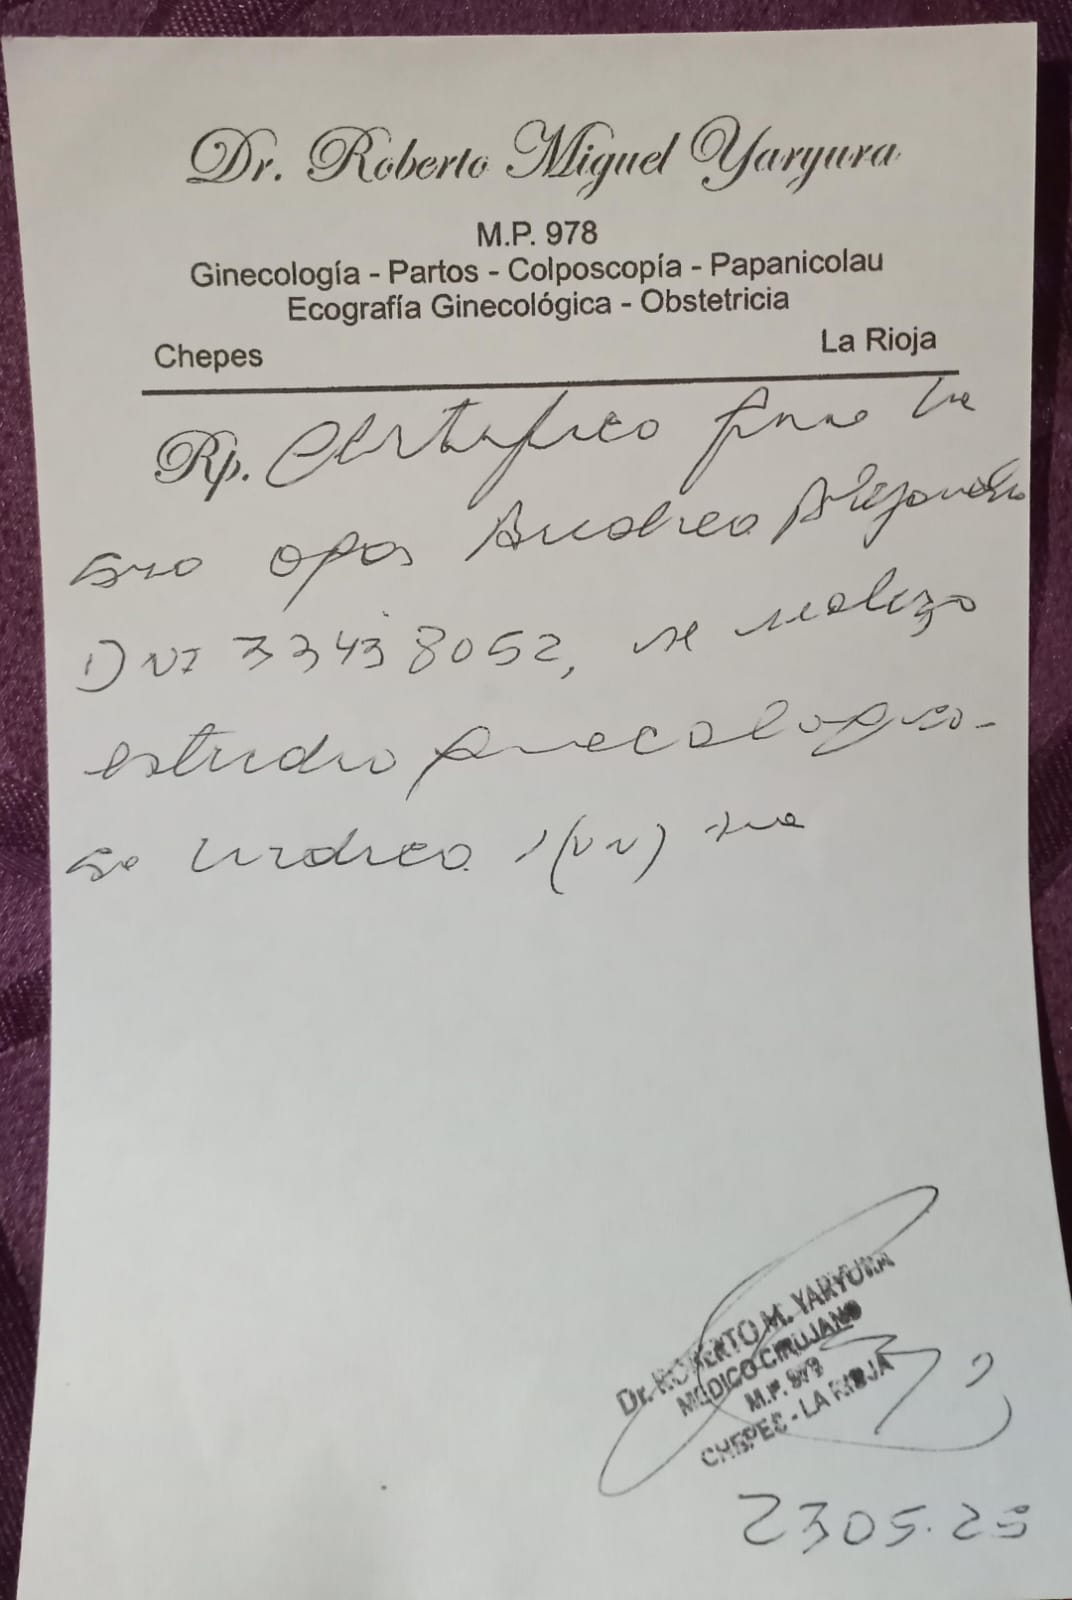 Dr. Roberto Miguel Yaryura
M.P. 978
Ginecología - Partos - Colposcopía - Papanicolau
Ecografía Ginecológica - Obstetricia
Chepes La Rioja
Rp. Certifico que la
Sra Andrea Alejandra
DNI 33438052, se realizo
estudio ginecologico.
Se indica 1 (un)
Dr. ROBERTO M. YARYURA
MEDICO CIRUJANO
M.P. 979
CHEPES - LA RIOJA
2305.25